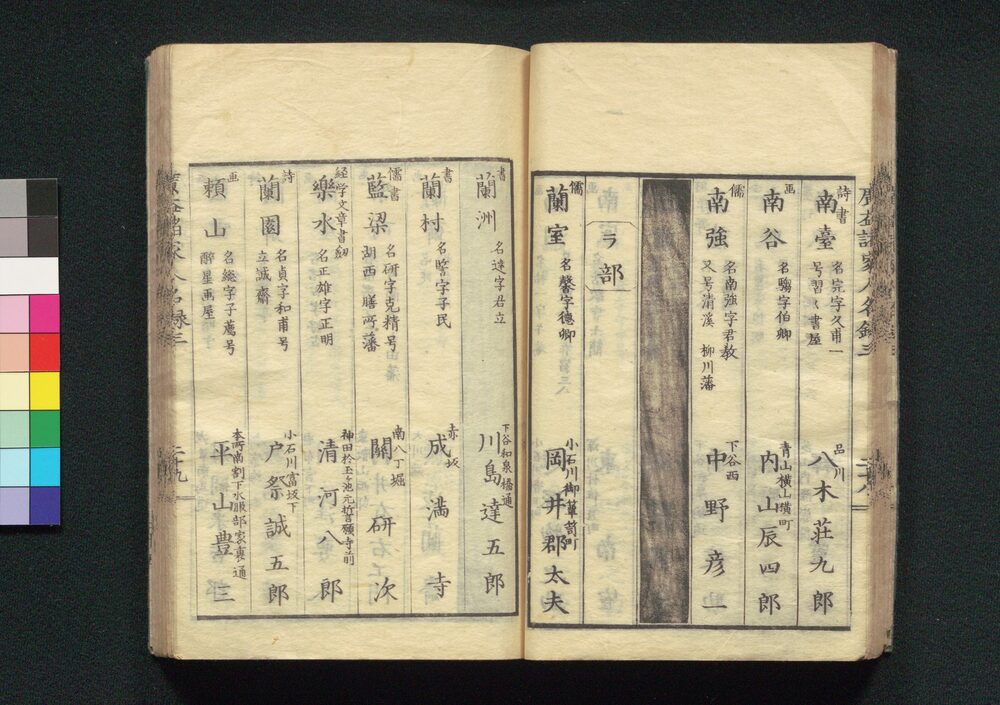 詩書
南臺
名完字久甫一
号習〻書屋
品川
八木荘九郎
画
南谷
名騶字伯卿
青山横山横町
内山辰四郎
儒
南強
名南強字君教
又号清溪 柳川藩
下谷西
中野彦一
ラ部
儒
蘭室
名馨字徳卿
小石川柳草蒟町
岡井郡太夫
書
蘭洲
名達字君立
下谷和泉橋通
川島達五郎
書
蘭村
名誓字子民
赤坂
成満寺
儒書
藍梁
名研字克精号
湖西 膳所藩
南八丁堀
關研次
経学文章書劒
樂水
名正雄字正明
神田於玉ヶ池元誓願寺前
清河八郎
詩
蘭園
名貞字和甫号
立誠齋
小石川富坂下
戸祭誠五郎
画
頼山
名総字子薦号
酔星画屋
本所南割下水服部家裏通
平山豊三